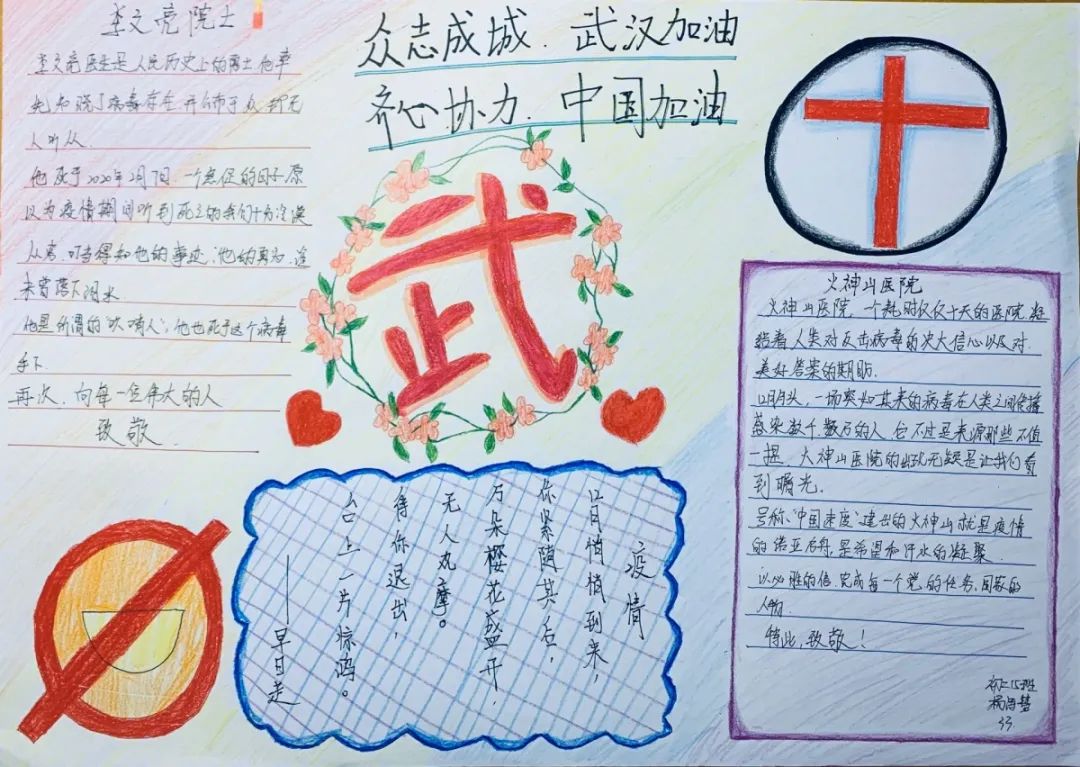 众志成城．武汉加油
齐心．协力．中国加油
李文亮院士
李文亮医生是人民历史上的勇士他率
先知晓了病毒存在并公布于众却无
人听从．
他死于2020年2月7日．一个急促的日子原
以为疫情期间听到死亡的我们十分冷漠
从容．可当得知他的事迹；他的真为．
未曾落下泪水
他是所谓的“吹哨人”；他也死于这个病毒
手下．
再次．向每一位伟大的人
致敬．
武
疫情
12月悄悄到来，
你紧随其后，
万朵樱花盛开，
无人观摩。
待你退出，
台上一片惊鸿。
——早日走
火神山医院
火神山医院．一个耗时仅仅十天的医院．凝
结着人类对反击病毒的决大信心以及对
美好答案的期盼．
12月月头，一场突如其来的病毒在人类之间传播
感染数千．数万的人．它不过是来源那些不值
一提．火神山医院的出现无疑是让我们看
到曙光．
号称：“中国速度”建出的火神山就是疫情
的诺亚方舟．是希望和汗水的凝聚．
以必胜的信．完成每一个党的任务、国家的
人物．
特此，致敬！
初二15班
33